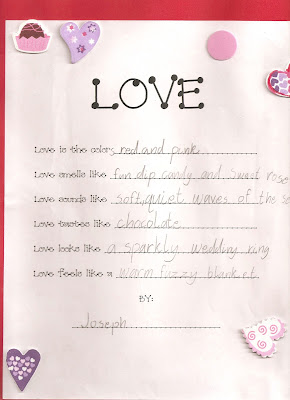 LOVE
Love is the colors red and pink
Love smells like fun dip candy and sweet rose
Love sounds like soft, quiet waves of the se
Love tastes like chocolate
Love looks like a sparkly wedding ring
Love feels like a warm fuzzy blanket
BY:
Joseph